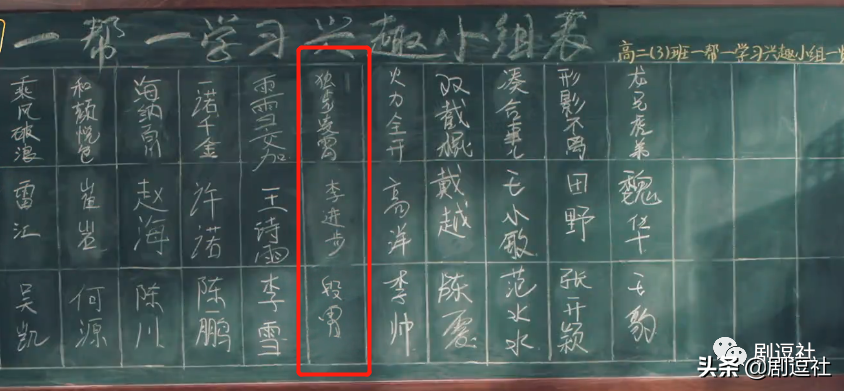 一帮一学习兴趣小组表
高二(3)班一帮一学习兴趣小组一
乘风破浪 和颜悦色 海纳百川 一诺千金 雨雪交加 独步凌霄 火力全开 双截棍 形影不离 龙兄虎弟
雷江 崔 赵海 许诺 王诗雨 李进步 高洋 戴越 王小敏 田野 魏
吴凯 何源 陈川 陈鹏 李雪 段霄 李帅 陈 范水水 张开颖 王豹
剧逗社
头条@剧逗社